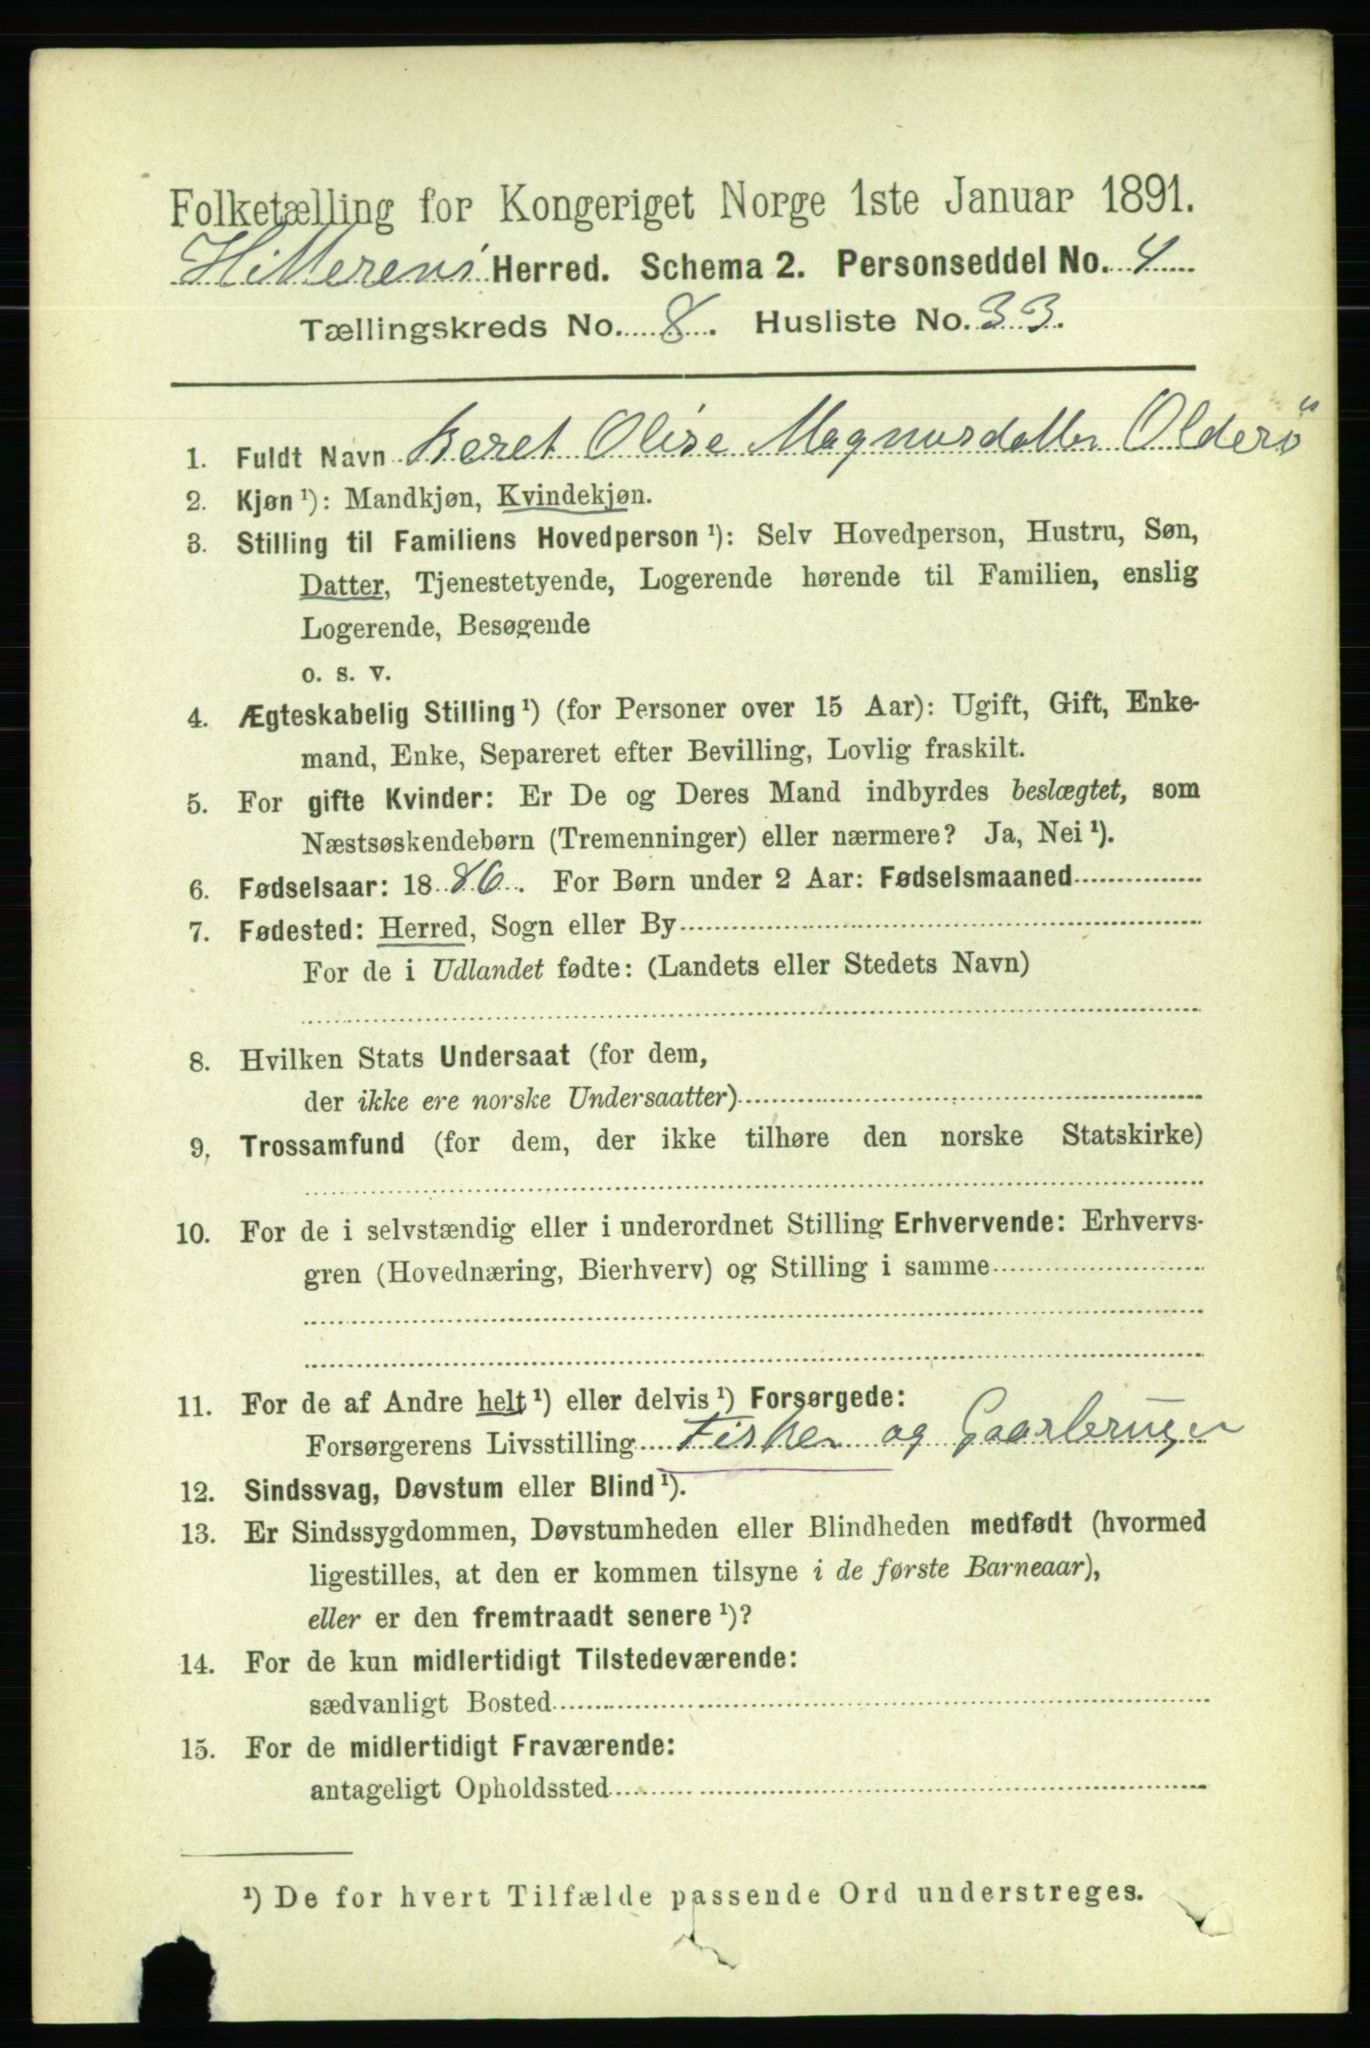 Folketælling for Kongeriget Norge 1ste Januar 1891.
Hitterens Herred. Schema 2. Personseddel No. 4
Tællingskreds No. 8. Husliste No. 33.
1. Fuldt Navn Beret Olise Magnusdatter Olderö
2. Kjøn ¹): Mandkjøn, Kvindekjøn.
3. Stilling til Familiens Hovedperson ¹): Selv Hovedperson, Hustru, Søn,
Datter, Tjenestetyende, Logerende hørende til Familien, enslig
Logerende, Besøgende
o. s. v.
4. Ægteskabelig Stilling ¹) (for Personer over 15 Aar): Ugift, Gift, Enke-
mand, Enke, Separeret efter Bevilling, Lovlig fraskilt.
5. For gifte Kvinder: Er De og Deres Mand indbyrdes beslægtet, som
Næstsøskendebørn (Tremenninger) eller nærmere? Ja, Nei ¹).
6. Fødselsaar: 1886. For Børn under 2 Aar: Fødselsmaaned
7. Fødested: Herred, Sogn eller By
For de i Udlandet fødte: (Landets eller Stedets Navn)
8. Hvilken Stats Undersaat (for dem,
der ikke ere norske Undersaatter)
9. Trossamfund (for dem, der ikke tilhøre den norske Statskirke)
10. For de i selvstændig eller i underordnet Stilling Erhvervende: Erhvervs-
gren (Hovednæring, Bierhverv) og Stilling i samme
11. For de af Andre helt ¹) eller delvis ¹) Forsørgede:
Forsørgerens Livsstilling Fisker og Gaarbruger
12. Sindssvag, Døvstum eller Blind ¹).
13. Er Sindssygdommen, Døvstumheden eller Blindheden medfødt (hvormed
ligestilles, at den er kommen tilsyne i de første Barneaar),
eller er den fremtraadt senere ¹)?
14. For de kun midlertidigt Tilstedeværende:
sædvanligt Bosted
15. For de midlertidigt Fraværende:
antageligt Opholdssted
¹) De for hvert Tilfælde passende Ord understreges.